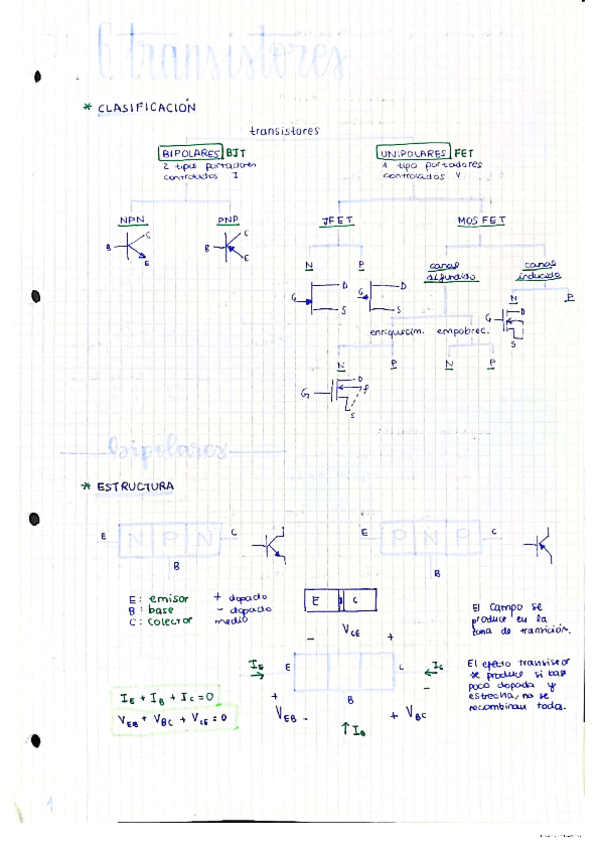 6 transistores
* CLASIFICACIÓN
transistores
BIPOLARES BJT
2 tipos portadores
controlados I
UNIPOLARES FET
1 tipo portadores
controlados V
NPN PNP JFET MOSFET
B C E
B C E
N P
canal difundido
canal inducido
G D S
G D S
N P
G D S
enriquecim. empobrec.
N P N P
G D S
bipolares
* ESTRUCTURA
E N P N C
B
E P N P C
B
E: emisor + dopado
B: base - dopado
C: colector medio
E C
El campo se
produce en la
zona de transición.
- VCE +
IE E C IC
B
+ VEB -
- + VBC
↑ IB
El efecto transistor
se produce si base
poco dopada y
estrecha, no se
recombinan toda.
IE + IB + IC = 0
VEB + VBC + VCE = 0
1